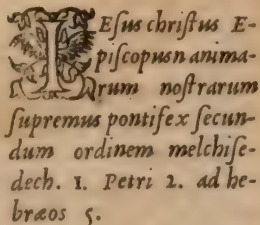 IEſus chriſtus E-
piſcopusn anima-
rum noſtrarum
ſupremus pontifex ſecun-
dum ordinem melchiſe-
dech. 1. Petri 2. ad he-
bræos 5.